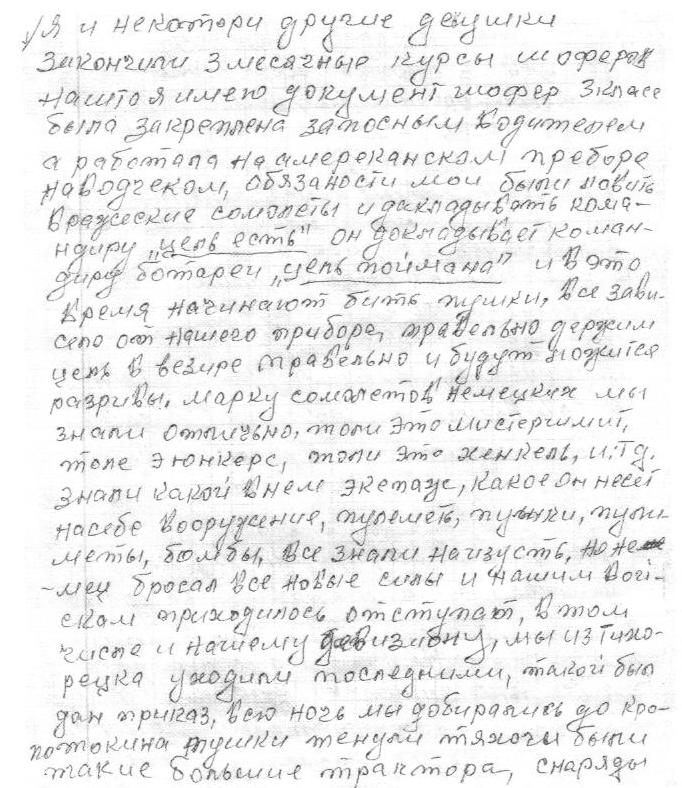 Я и некатори другие девушки
закончили 3 месячные курсы шоферов
нашто я имею документ шофер 3 класс
была закреплена запосным водителем
а работала на амереканском преборе
наводчеком, обязаности мои были ловить
вражеские сомолеты и дакладывать кома-
ндиру „цель есть" он докладывает коман-
диру ботареи „цель поймана" и в это
время начинают бить пушки, все зави-
село от нашего прибора, правельно держим
цель в везире правельно и будут ложится
разривы, марку сомолетов немецких мы
знали отлично, толи это мистершмит,
толе э юнкерс, толи это хенкель, и.т.д.
знали какой в нем экепаж, какое он несет
насебе вооружение, пулеметь, пушки, пули-
меты, бомбы, все знали наизусть, но не
-мец бросал все новые силы и нашим вой-
скам приходилось отступат, в том
числе и нашему девизиону, мы из Тихо-
рецка уходили последними, такой был
дан приказ, всю ночь мы добирались до Кро-
потокина пушки тенули тяхочи были
такие большие трактора, снаряды